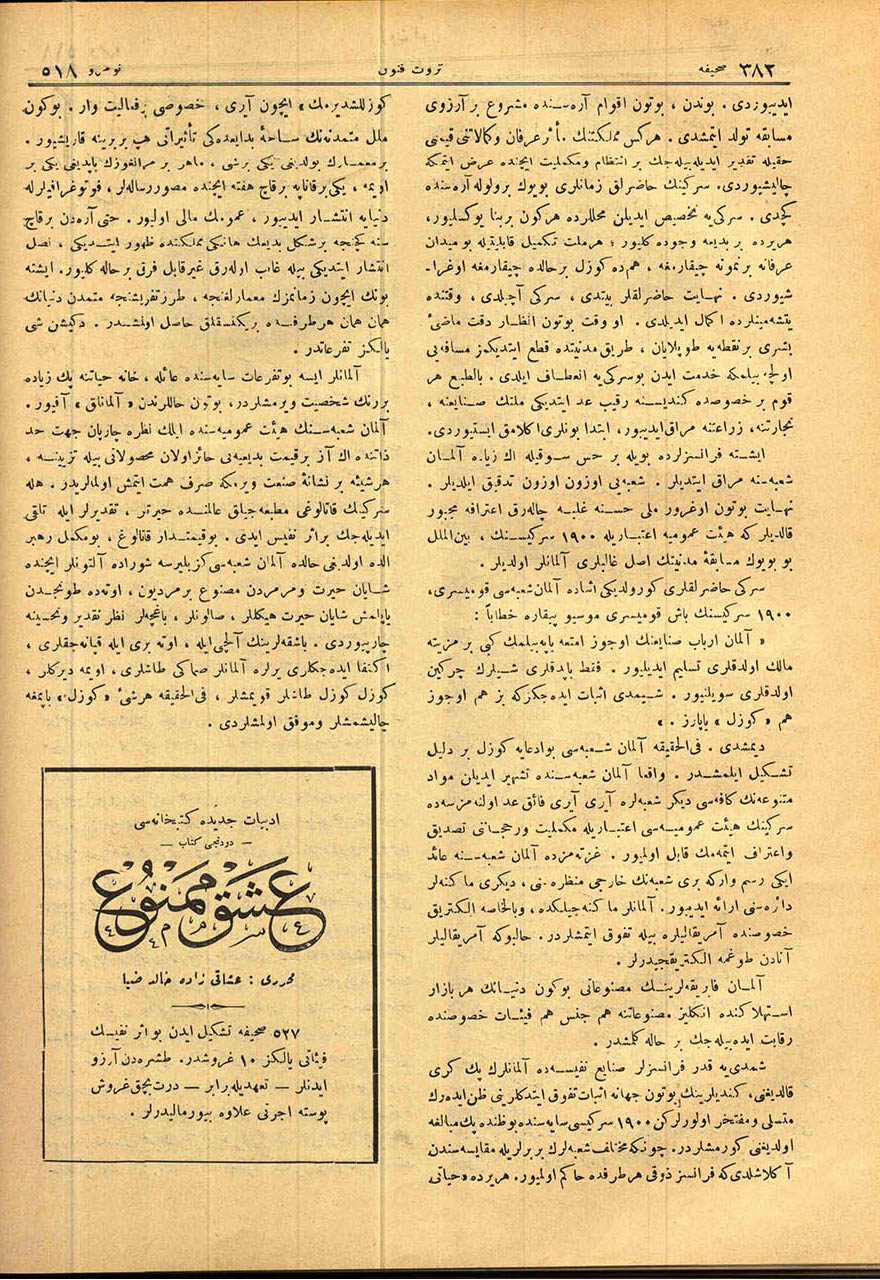 صحیفه ٣٨٢
ثروت فنون
نومرو ٥١٨
ایدیوردی . بوندن ، بوتون اقوام آره‌سنده مشروع بر آرزوی
مسابقه تولد ایتمشدی . هرکس مملکتنك مأثر عرفان وکمالاتنی قیمتی
حقیله تقدیر ایدیله‌بیله‌جك بر انتظام ومکملیت ایچنده عرض ایتمکه
چالیشیوردی. سرکینك حاضرلق زمانلری بویوك برولوله آره‌سنده
کچدی . سرکی‌یه تخصیص ایدیلن محللرده هرکون بربنا یوکسلیور،
هریرده بر بدیعه وجوده کلیور ؛ هرملت تکمیل قابلیتیله بو میدان
عرفانه برنمونه چیقارمغه ، هم‌ده کوزل برحالده چیقارمغه اوغرا-
شیوردی . نهایت حاضرلقلر بیتدی ، سرکی آچیلدی ، وقتنده
یتشه‌مینلرده اکمال ایدیلدی . او وقت بوتون انظار دقت ماضیٔ
بشری برنقطه‌یه طوپلایان ، طریق مدنیتده قطع ایتدیکمز مسافه‌یی
اولچه‌بیلمکه خدمت ایدن بوسرکی‌یه انعطاف ایلدی . بالطبع هر
قوم بر خصوصده کندیسنه رقیب عد ایتدیکی ملتك صنایعنه ،
تجارتنه، زراعتنه مراق ایدییور، ابتدا بونلری اکلامق ایستیوردی.
ایشته فرانسزلرده بویله بر حس سوقیله اك زیاده آلمان
شعبه‌سنه مراق ایتدیلر . شعبه‌یی اوزون اوزون تدقیق ایلدیلر .
نهایت بوتون اوغرور ملی حسنه غلبه چاله‌رق اعترافه مجبور
قالدیلرکه هیئت عمومیه اعتباریله ١٩٠٠ سرکیسنك ، بین‌الملل
بو بویوك مسابقهٔ مدنیتك اصل غالبلری آلمانلر اولدیلر .
سرکی حاضرلقلری کورولدیکی اثناده آلمان شعبه‌سی قومیسری،
١٩٠٠ سرکیسنك باش قومیسری موسیو پیقاره خطاباً :
« آلمان ارباب صنایعنك اوجوز امتعه یاپه‌بیلمك کبی بر مزیته
مالك اولدقلری تسلیم ایدیلیور . فقط یاپدقلری شیلرك چرکین
اولدقلری سویلنیور . شیمدی اثبات ایده‌جکزکه بز هم اوجوز
هم «کوزل» یاپارز . »
دیمشدی . فی‌الحقیقه آلمان شعبه‌سی بوادعایه کوزل بر دلیل
تشکیل ایلمشدر . واقعا آلمان شعبه‌سنده تشهیر ایدیلن مواد
متنوعه‌نك کافه‌سی دیکر شعبه‌لره آیری آیری فائق عد اولنه‌مزسه‌ده
سرکینك هیئت عمومیه‌سی اعتباریله مکملیت ورجحانی تصدیق
واعتراف ایتمه‌مك قابل اولمیور . غزته‌مزده آلمان شعبه‌سنه عائد
ایکی رسم وارکه بری شعبه‌نك خارجی منظره‌سنی ، دیکری ماکنه‌لر
دائره‌سنی ارائه ایدییور. آلمانلر ماکنه‌جیلکده ، وبالخاصه الکتریق
خصوصنده آمریقالیلره بیله تفوق ایتمشلردر. حالبوکه آمریقالیلر
آنادن طوغمه الکتریقجیدرلر .
آلمان فابریقه‌لرینك مصنوعاتی بوکون دنیانك هر بازار
استهلاکنده انکلیز مصنوعاتنه هم جنس هم فیئات خصوصنده
رقابت ایده‌بیله‌جك بر حاله کلمشدر .
شمدی‌یه قدر فرانسزلر صنایع نفیسه‌ده آلمانلرك پك کری
قالدیغنی، کندیلرینك بوتون جهانه اثبات تفوق ایتدکلرینی ظن ایده‌رك
متسلی ومفتخر اولورلرکن ١٩٠٠ سرکیسی سایه‌سنده بوظنده پك مبالغه
اولدیغنی کورمشلردر. چونکه مختلف شعبه‌لرك بربرلریله مقایسه‌سندن
آکلاشلدی‌که فرانسز ذوقی هرطرفده حاکم اولمیور. هریرده «حیاتی
کوزللشدیرمك» ایچون آیری ، خصوصی برفعالیت وار . بوکون
ملل متمدنه‌نك ساحهٔ بدایعده‌کی تأثیراتی هپ بربرینه قاریشیور .
برمعمارك بولدیغی یکی برشی ، ماهر بر مرانغوزك یاپدیغی یکی بر
اویمه ، یکی برقاناپه برقاچ هفته ایچنده مصور رساله‌لر، فوتوغرافیلرله
دنیایه انتشار ایدییور ، عمومك مالی اولیور . حتی آره‌دن برقاچ
سنه کچنجه برشکل بدیعك هانکی مملکتده ظهور ایتدیکی ، نصل
انتشار ایتدیکی بیله غائب اوله‌رق غیرقابل فرق برحاله کلیور. ایشته
بونك ایچون زمانمزك معمارلغنجه ، طرز تفریشنجه متمدن دنیانك
همان همان هرطرفنده بریکنسقلق حاصل اولمشدر . دکیشن شی
یالکز تفرعاتدر .
آلمانلر ایسه بوتفرعات سایه‌سنده عائله ، خانه حیاتنه پك زیاده
بررنك شخصیت ویرمشلردر، بوتون حاللرندن «آلمانلق» آقیور .
آلمان شعبه‌سنك هیئت عمومیه‌سنده ایلك نظره چارپان جهت حد
ذاتنده اك آز برقیمت بدیعیه‌یی حائز اولان محصولاتی بیله تزیینه ،
هرشیئه بر نشانهٔ صنعت ویرمکه صرف همت ایتمش اولمالریدر. هله
سرکینك قاتالوغی مطبعه‌جیلق عالمنده حیرتلر ، تقدیرلر ایله تلقی
ایدیله‌جك براثر نفیس ایدی. بوقیمتدار قاتالوغ ، بومکمل رهبر
الده اولدیغی حالده آلمان شعبه‌سی کزیلیرسه شوراده آلتونلر ایچنده
شایان حیرت ومرمردن مصنوع برمردیون، اوته‌ده طونجدن
یاپلمش شایان حیرت هیکللر ، صالونلر ، باغچه‌لر نظر تقدیر وتحسینه
چارپیوردی . باشقه‌لرینك آلچی‌ایله ، اوته بری ایله قپانه‌جقلری ،
اکتفا ایده‌جکلری یرلره آلمانلر صماکی طاشلری ، اویمه دیرکلر ،
کوزل کوزل طاشلر قویمشلر ، فی‌الحقیقه هرشیٔ «کوزل» یاپمغه
چالیشمشلر وموفق اولمشلردی .
ادبیات جدیده کتبخانه‌سی
— دردنجی کتاب —
عشق ممنوع
محرری : عشاقی زاده خالد ضیا
٥٢٧ صحیفه تشکیل ایدن بو اثر نفیسك
فیئاتی یالکز ١٠ غروشدر. طشره‌دن آرزو
ایدنلر — تعهدیله برابر — درت بچق غروش
پوسته اجرتی علاوه بیورمالیدرلر .